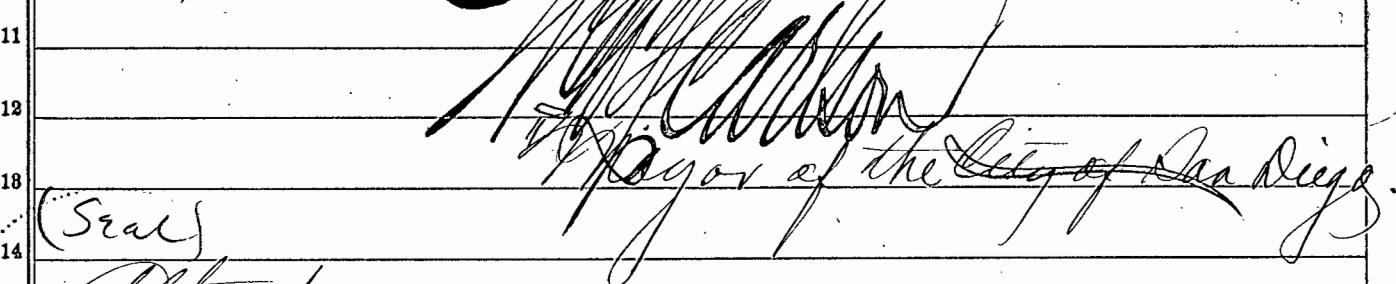 11
Carlson
12
Mayor of the City of San Diego.
13
(Seal)
14